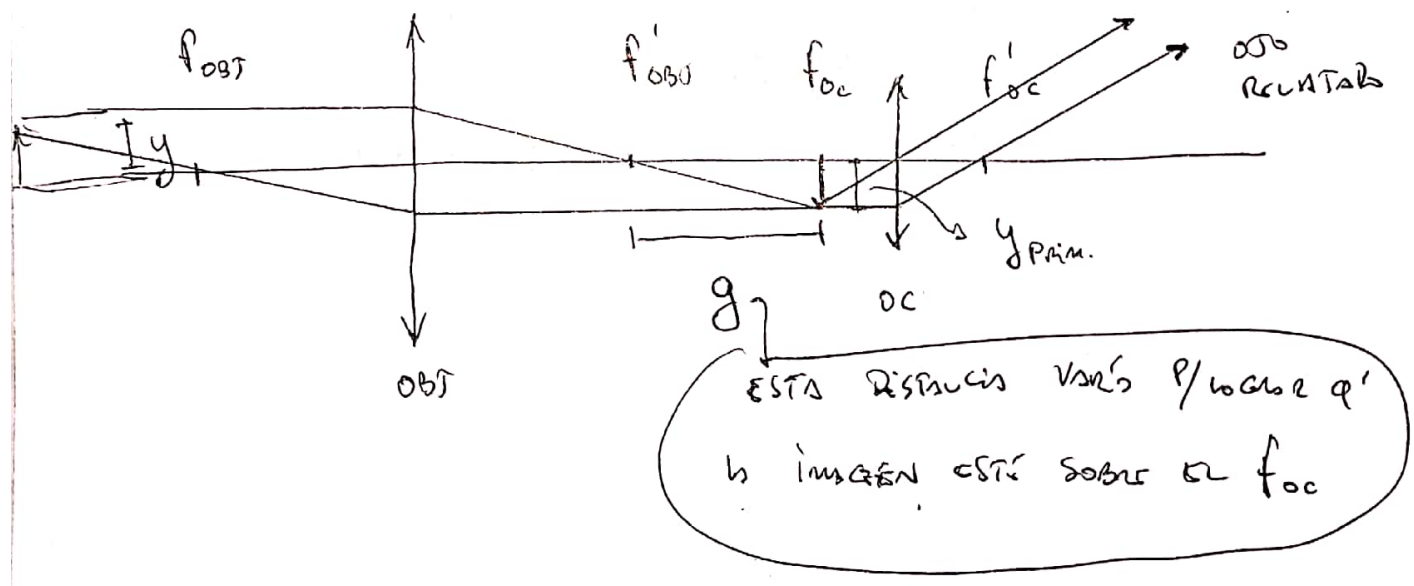 f OBJ
f' OBJ
f oc
f' oc
OJO
RELAJADO
y
y PRIM.
g
OC
OBJ
ESTA DISTANCIA VARÍA P/LOGRAR q'
LA IMAGEN ESTÉ SOBRE EL f oc